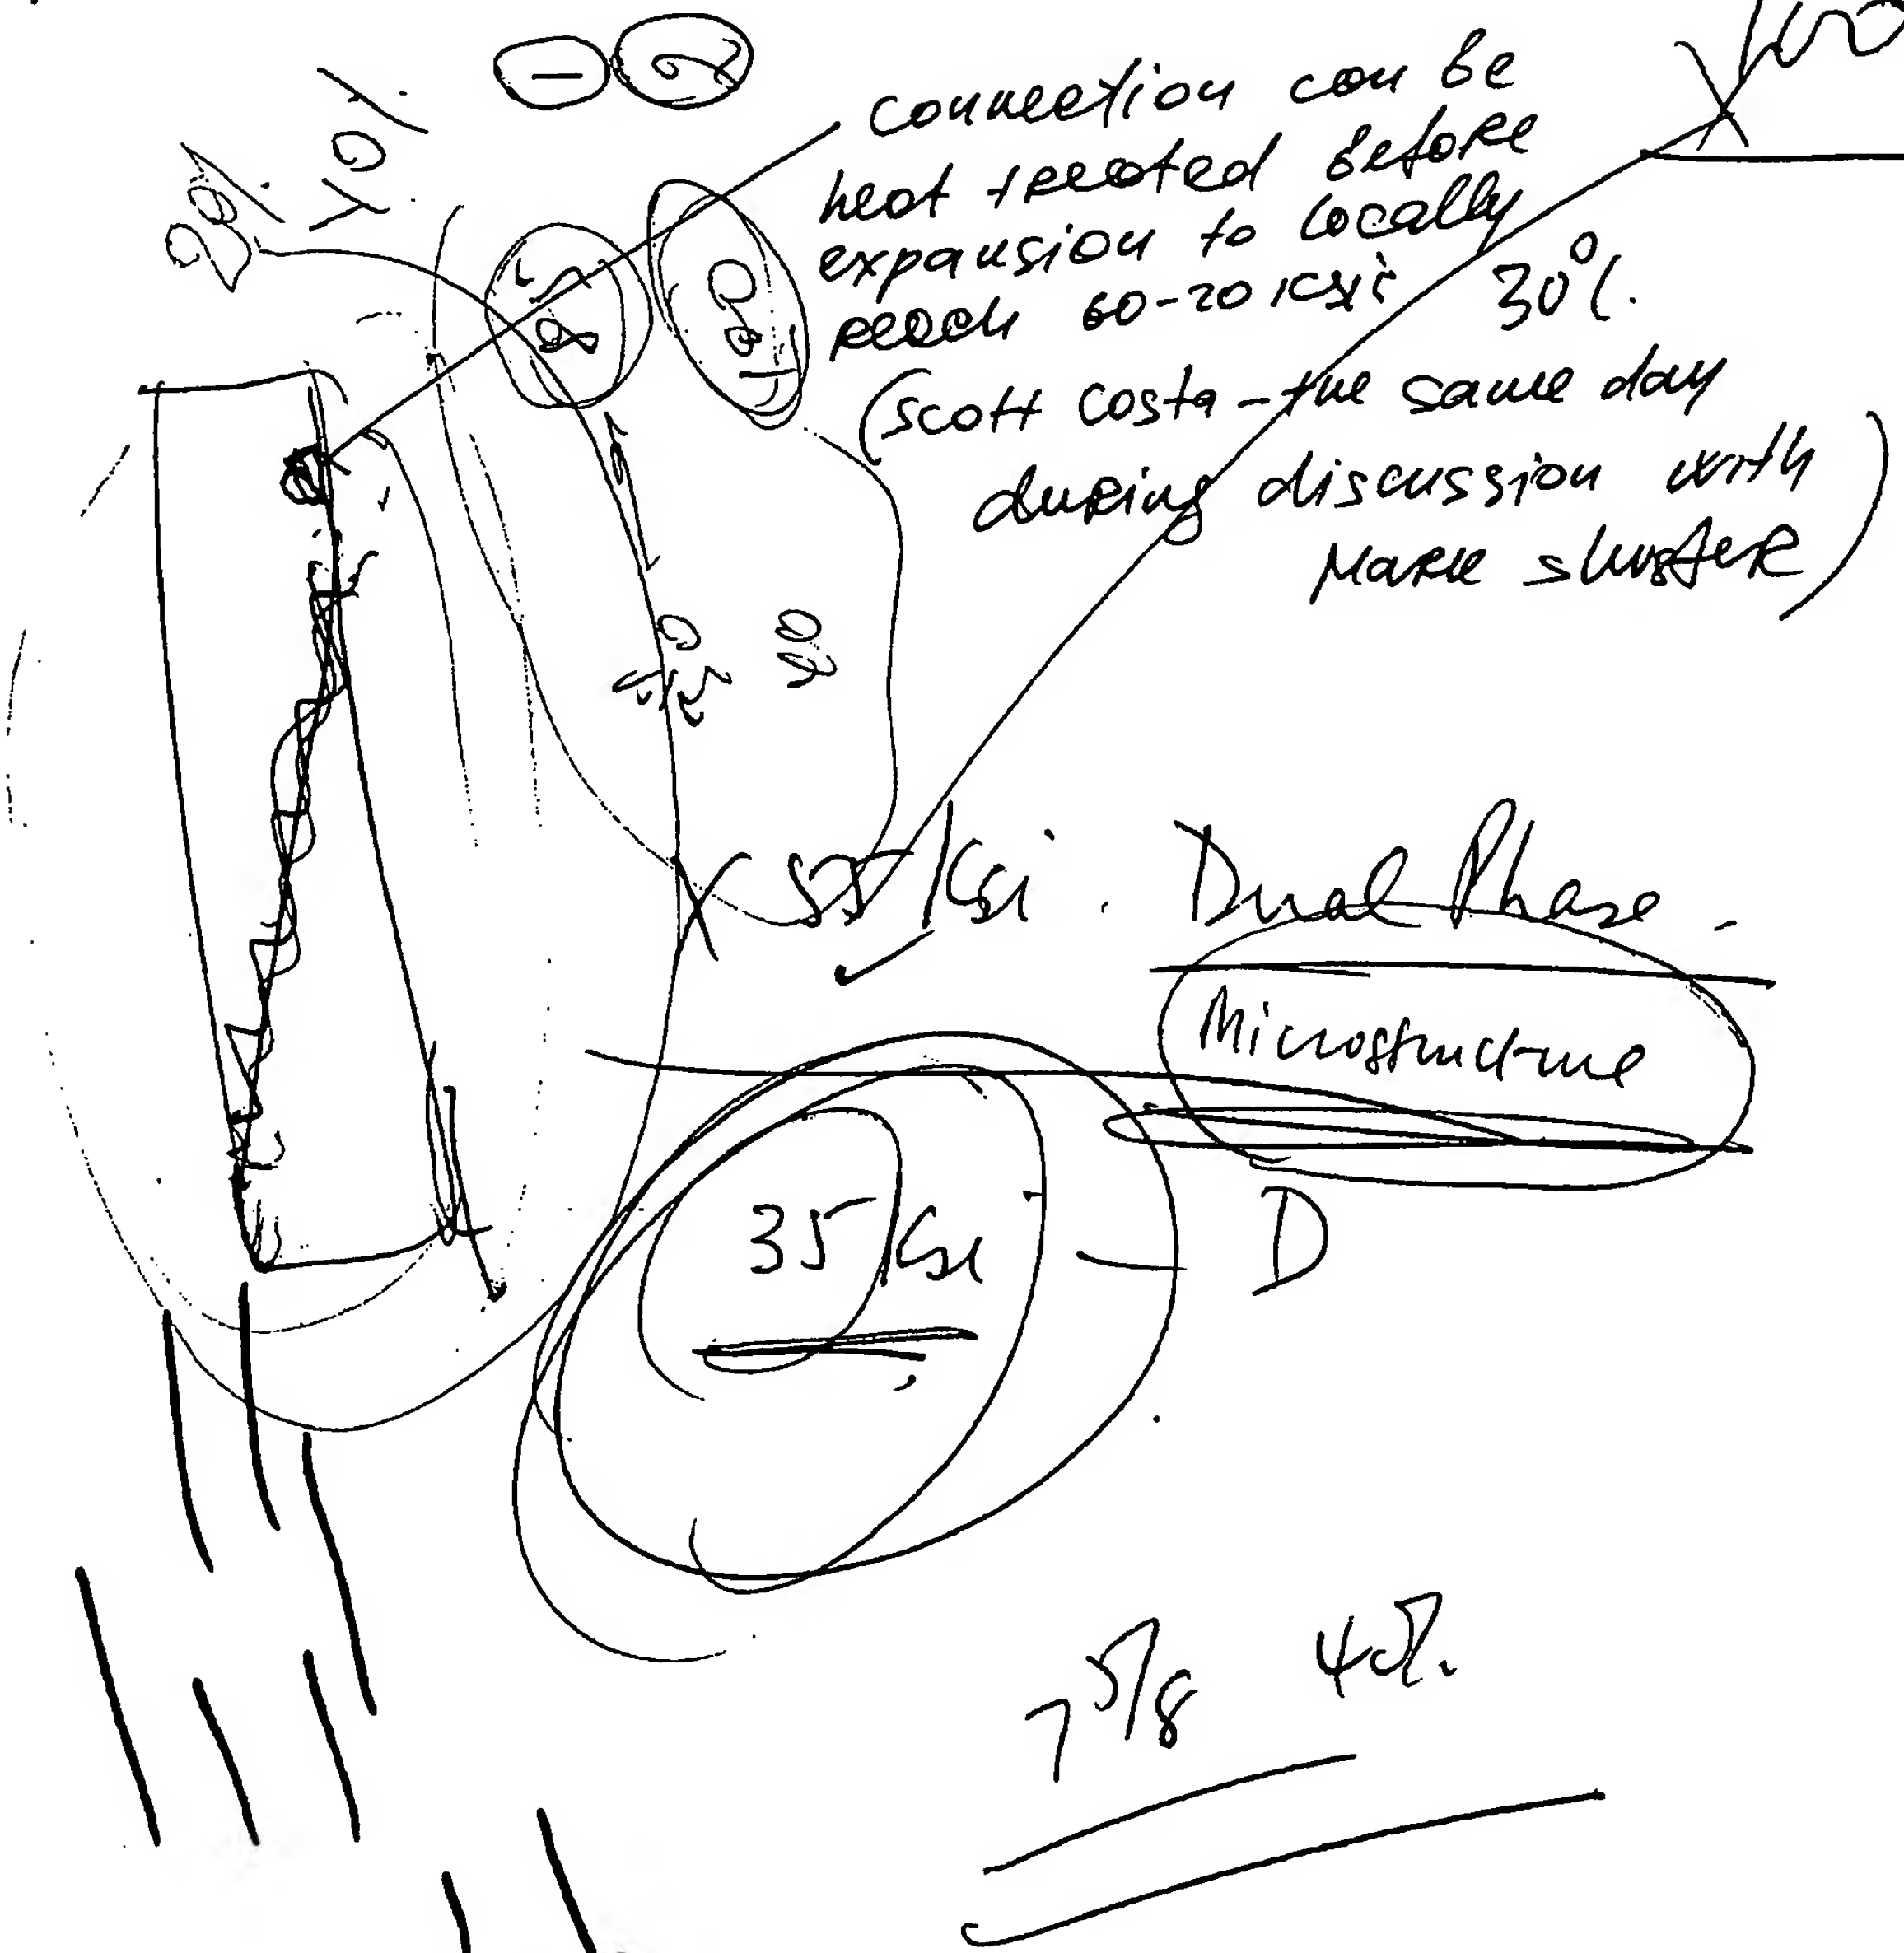 connection can be
heat treated before
expansion to locally
reach 60-70 ksi 30%.
(Scott Costa - the same day
during discussion with
Mark Shuster)
55 Ksi. Dual Phase -
Microstructure
35 Ksi - D
7 5/8 40%